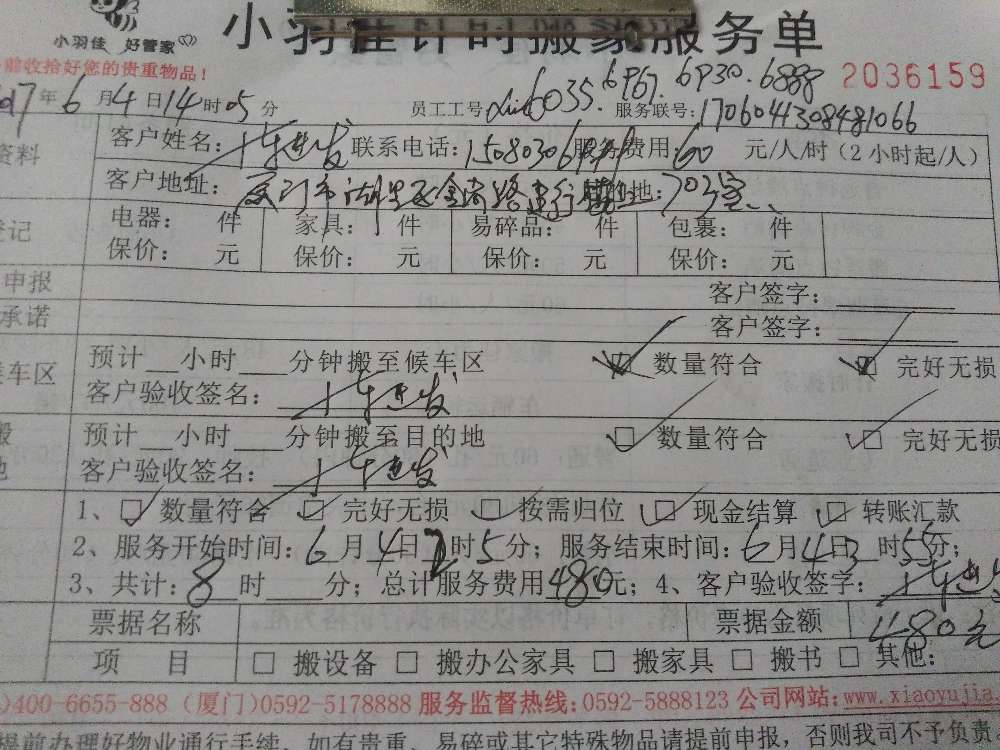 小羽佳 好管家
小羽佳计时搬家服务单
前收拾好您的贵重物品！
2036159
年6月4日14时05分 员工工号 6035.6967.6930.6888 服务联号:1706041308481066
资料 客户姓名: 联系电话: 服务费用:60元/人/时（2小时起/人）
客户地址: 厦门市湖里区 目的地: 703室
登记 电器: 件 家具: 件 易碎品: 件 包裹: 件
保价: 元 保价: 元 保价: 元 保价: 元
申报 客户签字:
承诺 客户签字:
候车区 预计 小时 分钟搬至候车区 数量符合 完好无损
客户验收签名:
预计 小时 分钟搬至目的地 □ 数量符合 □ 完好无损
地 客户验收签名:
1、□ 数量符合 □ 完好无损 □ 按需归位 □ 现金结算 □ 转账汇款
2、服务开始时间:6月4日 时5分；服务结束时间:6月4日3时55分；
3、共计:8时 分；总计服务费用480元；4、客户验收签字:
票据名称 票据金额 480元
项 目 □ 搬设备 □ 搬办公家具 □ 搬家具 □ 搬书 □ 其他:
)400-6655-888 (厦门)0592-5178888 服务监督热线:0592-5888123 公司网站:www.xiaoyujia.
提前办理好物业通行手续。如有贵重、易碎或其它特殊物品请提前申报，否则我司不予负责